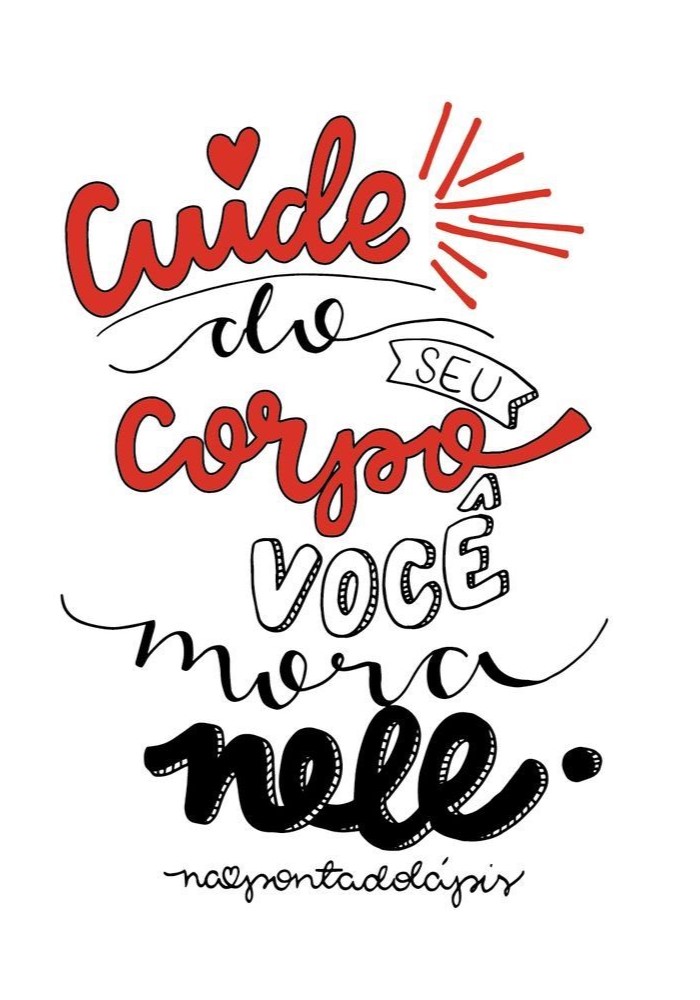 Cuide
do
SEU
Corpo
VOCÊ
mora
nele.
napontadolápis